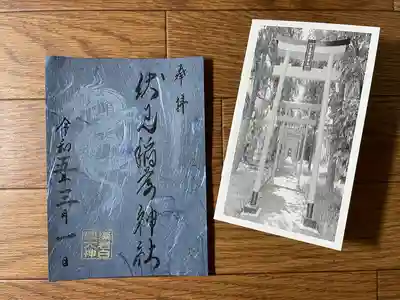 奉拝
伏見稲荷神社
令和五年三月一日